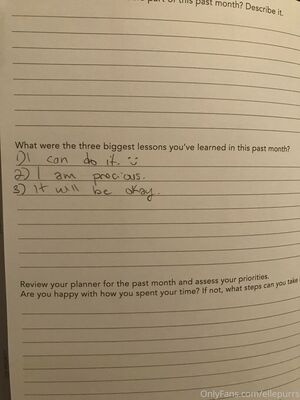 part of this past month? Describe it.
What were the three biggest lessons you've learned in this past month?
1) I can do it. :)
2) I am precious.
3) It will be okay.
Review your planner for the past month and assess your priorities.
Are you happy with how you spent your time? If not, what steps can you take
OnlyFans.com/ellepurrs